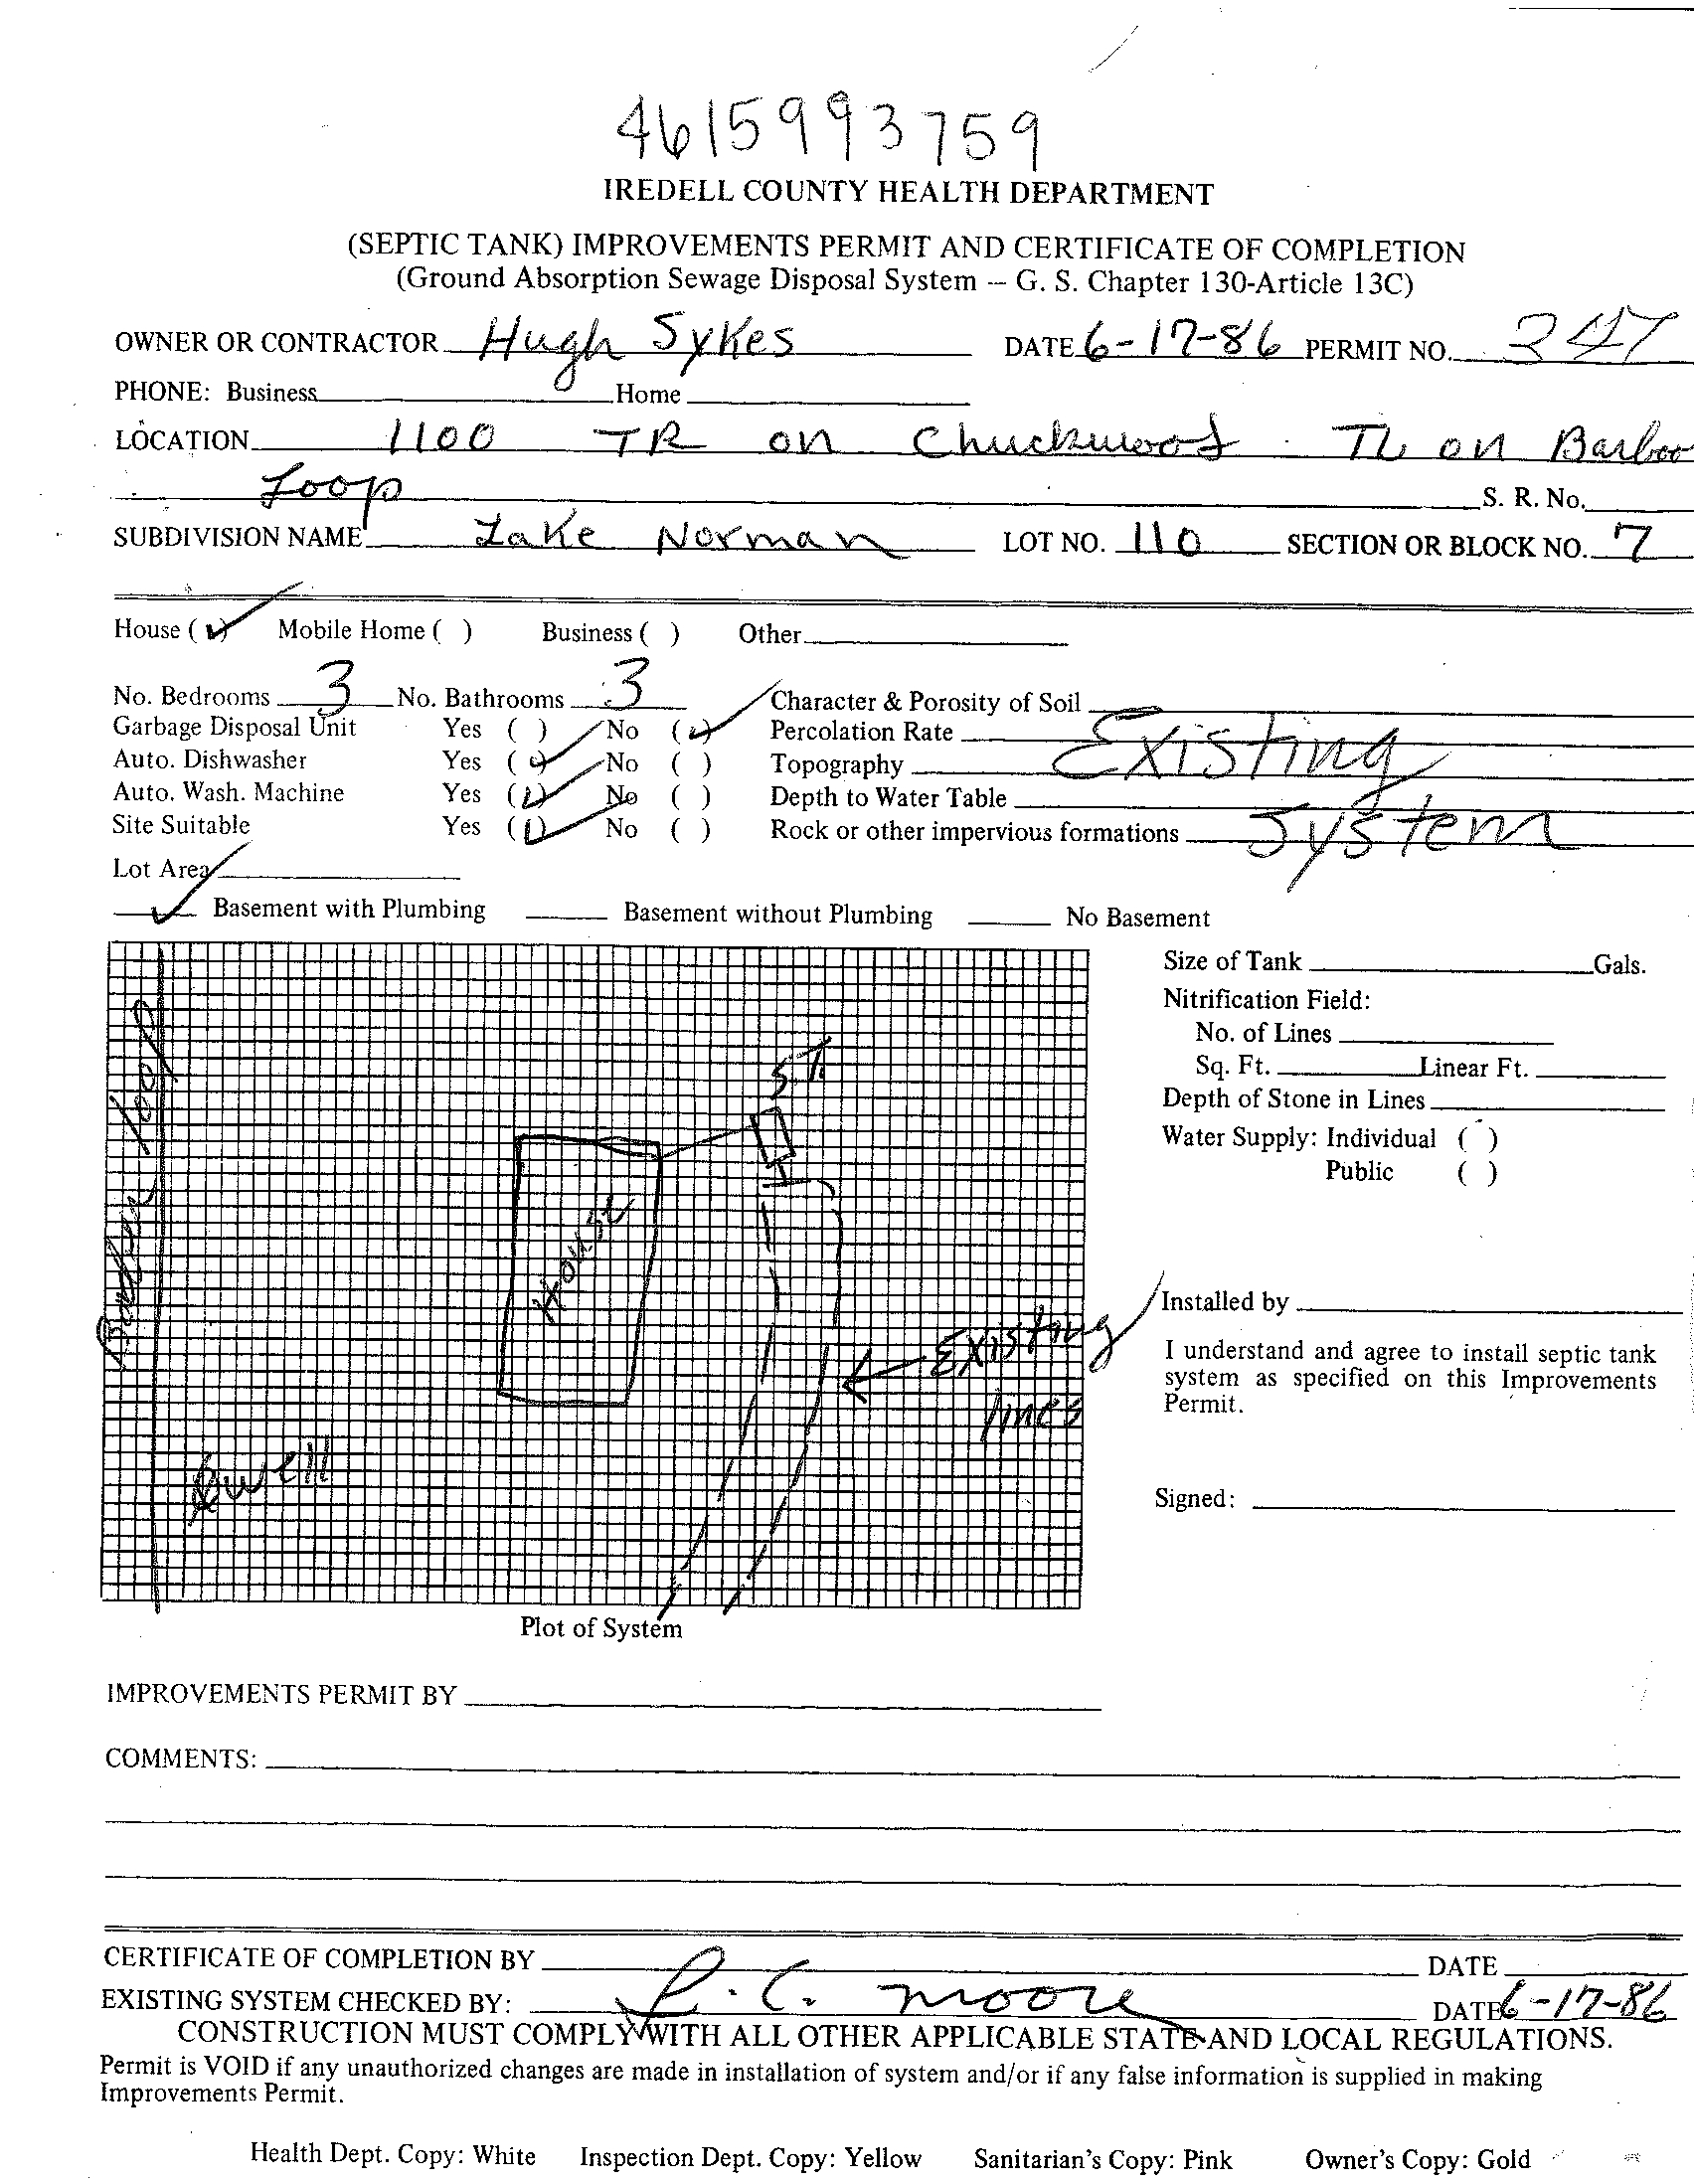 4615993759
IREDELL COUNTY HEALTH DEPARTMENT
(SEPTIC TANK) IMPROVEMENTS PERMIT AND CERTIFICATE OF COMPLETION
(Ground Absorption Sewage Disposal System -- G. S. Chapter 130-Article 13C)
OWNER OR CONTRACTOR Hugh Sykes DATE 6-17-86 PERMIT NO. 347
PHONE: Business Home
LOCATION 1100 TR on Chuckwood. TL on
Loop S. R. No.
SUBDIVISION NAME Lake Norman LOT NO. 110 SECTION OR BLOCK NO. 7
House (✓) Mobile Home ( ) Business ( ) Other
No. Bedrooms 3 No. Bathrooms 3 Character & Porosity of Soil
Garbage Disposal Unit Yes ( ) No (✓) Percolation Rate Existing
Auto. Dishwasher Yes (✓) No ( ) Topography
Auto. Wash. Machine Yes (✓) No ( ) Depth to Water Table System
Site Suitable Yes (✓) No ( ) Rock or other impervious formations
Lot Area
✓ Basement with Plumbing Basement without Plumbing No Basement
Size of Tank Gals.
Nitrification Field:
No. of Lines
Sq. Ft. Linear Ft.
Depth of Stone in Lines
Water Supply: Individual ( )
Public ( )
loop
S.T.
House
Existing
lines
well
Installed by
I understand and agree to install septic tank
system as specified on this Improvements
Permit.
Signed:
Plot of System
IMPROVEMENTS PERMIT BY
COMMENTS:
CERTIFICATE OF COMPLETION BY DATE
EXISTING SYSTEM CHECKED BY: R. C. Moore DATE 6-17-86
CONSTRUCTION MUST COMPLY WITH ALL OTHER APPLICABLE STATE AND LOCAL REGULATIONS.
Permit is VOID if any unauthorized changes are made in installation of system and/or if any false information is supplied in making
Improvements Permit.
Health Dept. Copy: White Inspection Dept. Copy: Yellow Sanitarian's Copy: Pink Owner's Copy: Gold